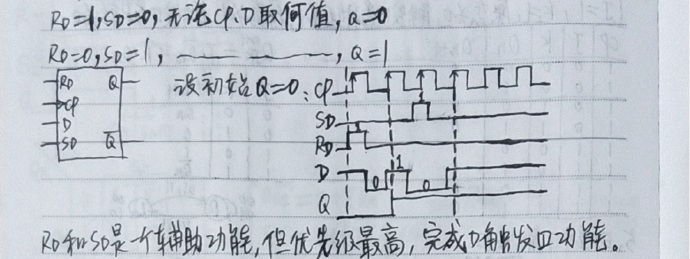 RD=1,SD=0,无论CP、D取何值,Q=0
RD=0,SD=1, —— —— ——,Q=1
RD Q
CP
D
SD Q̅
设初始Q=0:CP
SD
RD
D 0 1 0
Q
RD和SD是一个辅助功能,但优先级最高,完成D触发四功能。